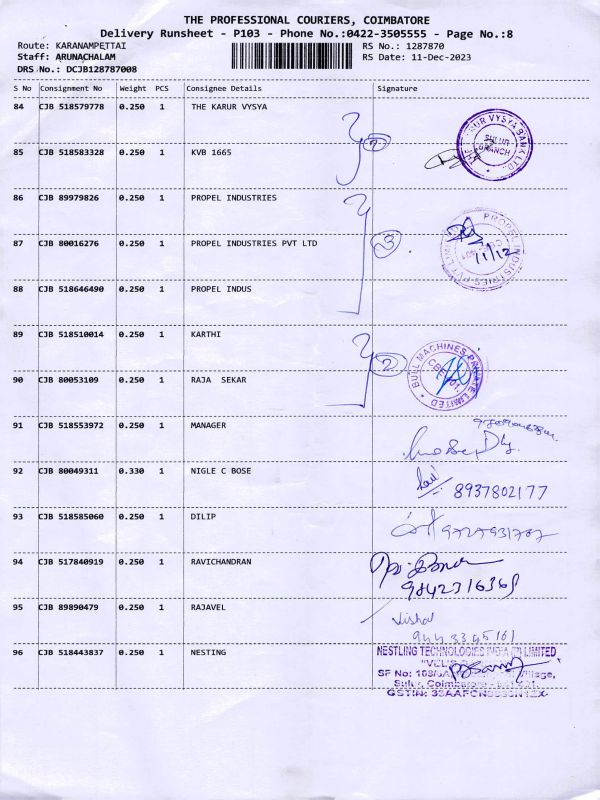 THE PROFESSIONAL COURIERS, COIMBATORE
Delivery Runsheet - P103 - Phone No.:0422-3505555 - Page No.:8
Route: KARANAMPETTAI RS No.: 1287870
Staff: ARUNACHALAM RS Date: 11-Dec-2023
DRS No.: DCJB128787008
S No Consignment No Weight PCS Consignee Details Signature
84 CJB 518579778 0.250 1 THE KARUR VYSYA
SULUR BRANCH
2
85 CJB 518583328 0.250 1 KVB 1665
86 CJB 89979826 0.250 1 PROPEL INDUSTRIES
87 CJB 80016276 0.250 1 PROPEL INDUSTRIES PVT LTD
3
11/12
88 CJB 518646490 0.250 1 PROPEL INDUS
89 CJB 518510014 0.250 1 KARTHI
2
BULL MACHINES PRIVATE LIMITED
90 CJB 80053109 0.250 1 RAJA SEKAR
91 CJB 518553972 0.250 1 MANAGER
92 CJB 80049311 0.330 1 NIGLE C BOSE
8937802177
93 CJB 518585060 0.250 1 DILIP
94 CJB 517840919 0.250 1 RAVICHANDRAN
95 CJB 89890479 0.250 1 RAJAVEL
Vishal
9443345161
96 CJB 518443837 0.250 1 NESTING
NESTLING TECHNOLOGIES INDIA (P) LIMITED